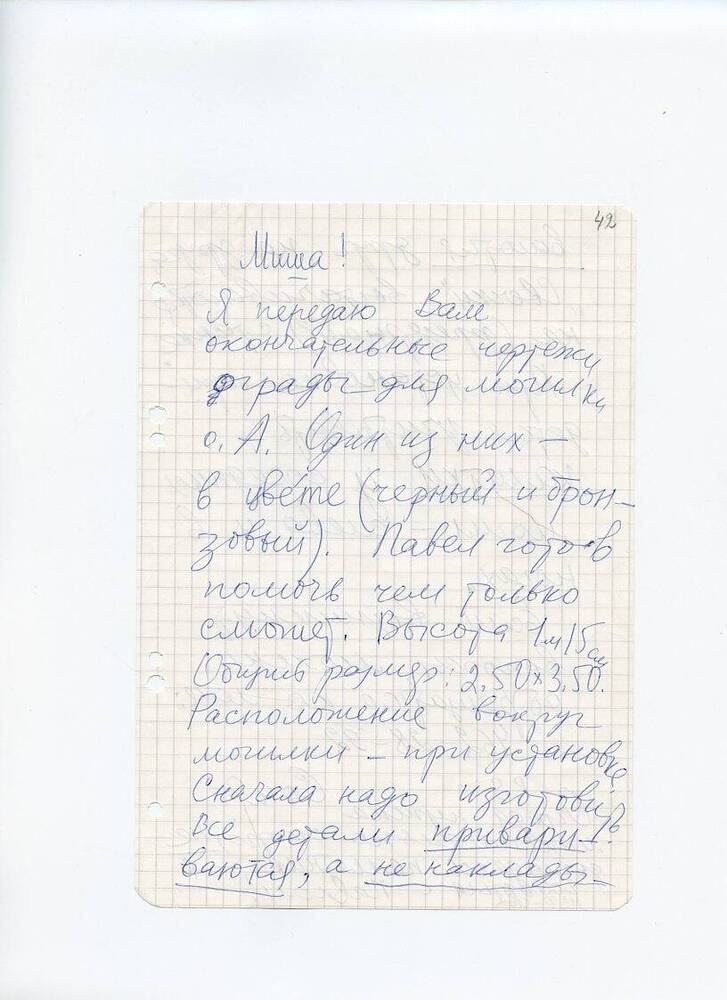 42
Миша!
Я передаю Вам
окончательные чертежи
ограды для могилки
о. А. Один из них —
в цвете (черный и брон-
зовый). Павел готов
помочь чем только
сможет. Высота 1м15см
Общий размер: 2,50х3,50.
Расположение вокруг
могилки – при установке.
Сначала надо изготовить.
Все детали привари-
ваются, а не наклады-